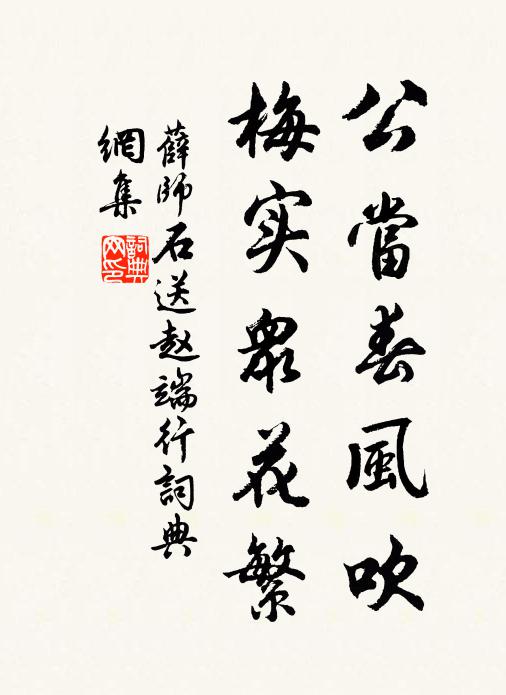 公當春風吹
梅实眾花繁
薛师石送赵端行詞典
網集
詞典
网印